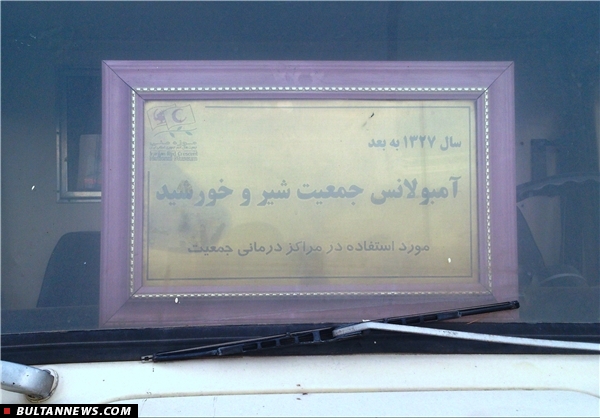 سال ۱۳۲۷ به بعد
آمبولانس جمعیت شیر و خورشید
مورد استفاده در مراکز درمانی جمعیت
BULTANNEWS.COM